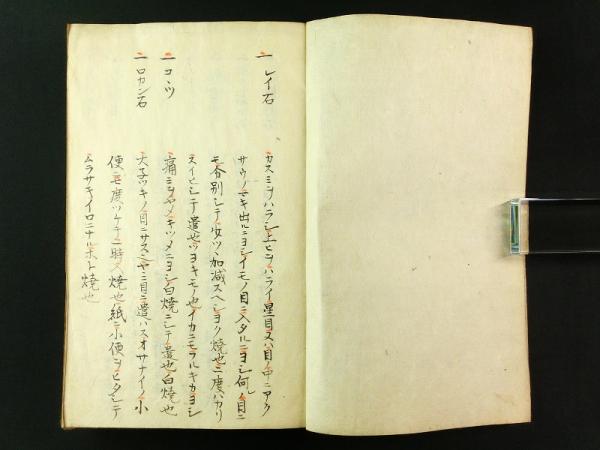 一 レイ石
カスミヲハラシ上ヒヲハライ星目又ハ目ノ中ニアク
サウノマキ出ルニヨシイモノ目ニ入タルニヨシ何ノ目ニ
モ分別シテ少ツヽ加減スヘシヨク焼也二度ハカリ
スイヒシテ遣也ツヨキモノ也イカニモフルキカヨシ
一 コツ
痛ミヲヤメキツメニヨシ白焼ニシテ遣也白焼也
一 ロカン石
ツキノ目ニサスヤミ目ニ遣ハスオサナイノ小
便ニモ度ツケテ二時又焼也紙ニ小便ヲヒタシテ
ムラサキノイロニナルホト焼也